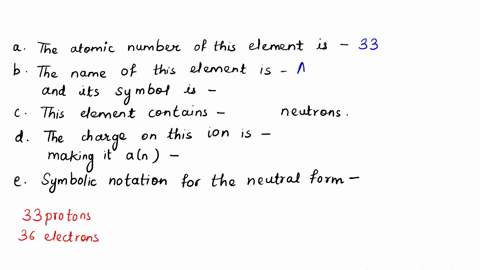 a. The atomic number of this element is - 33
b. The name of this element is - Λ
and its symbol is -
c. This element contains - neutrons.
d. The charge on this ion is -
making it a(n) -
e. Symbolic notation for the neutral form -
33 protons
36 electrons